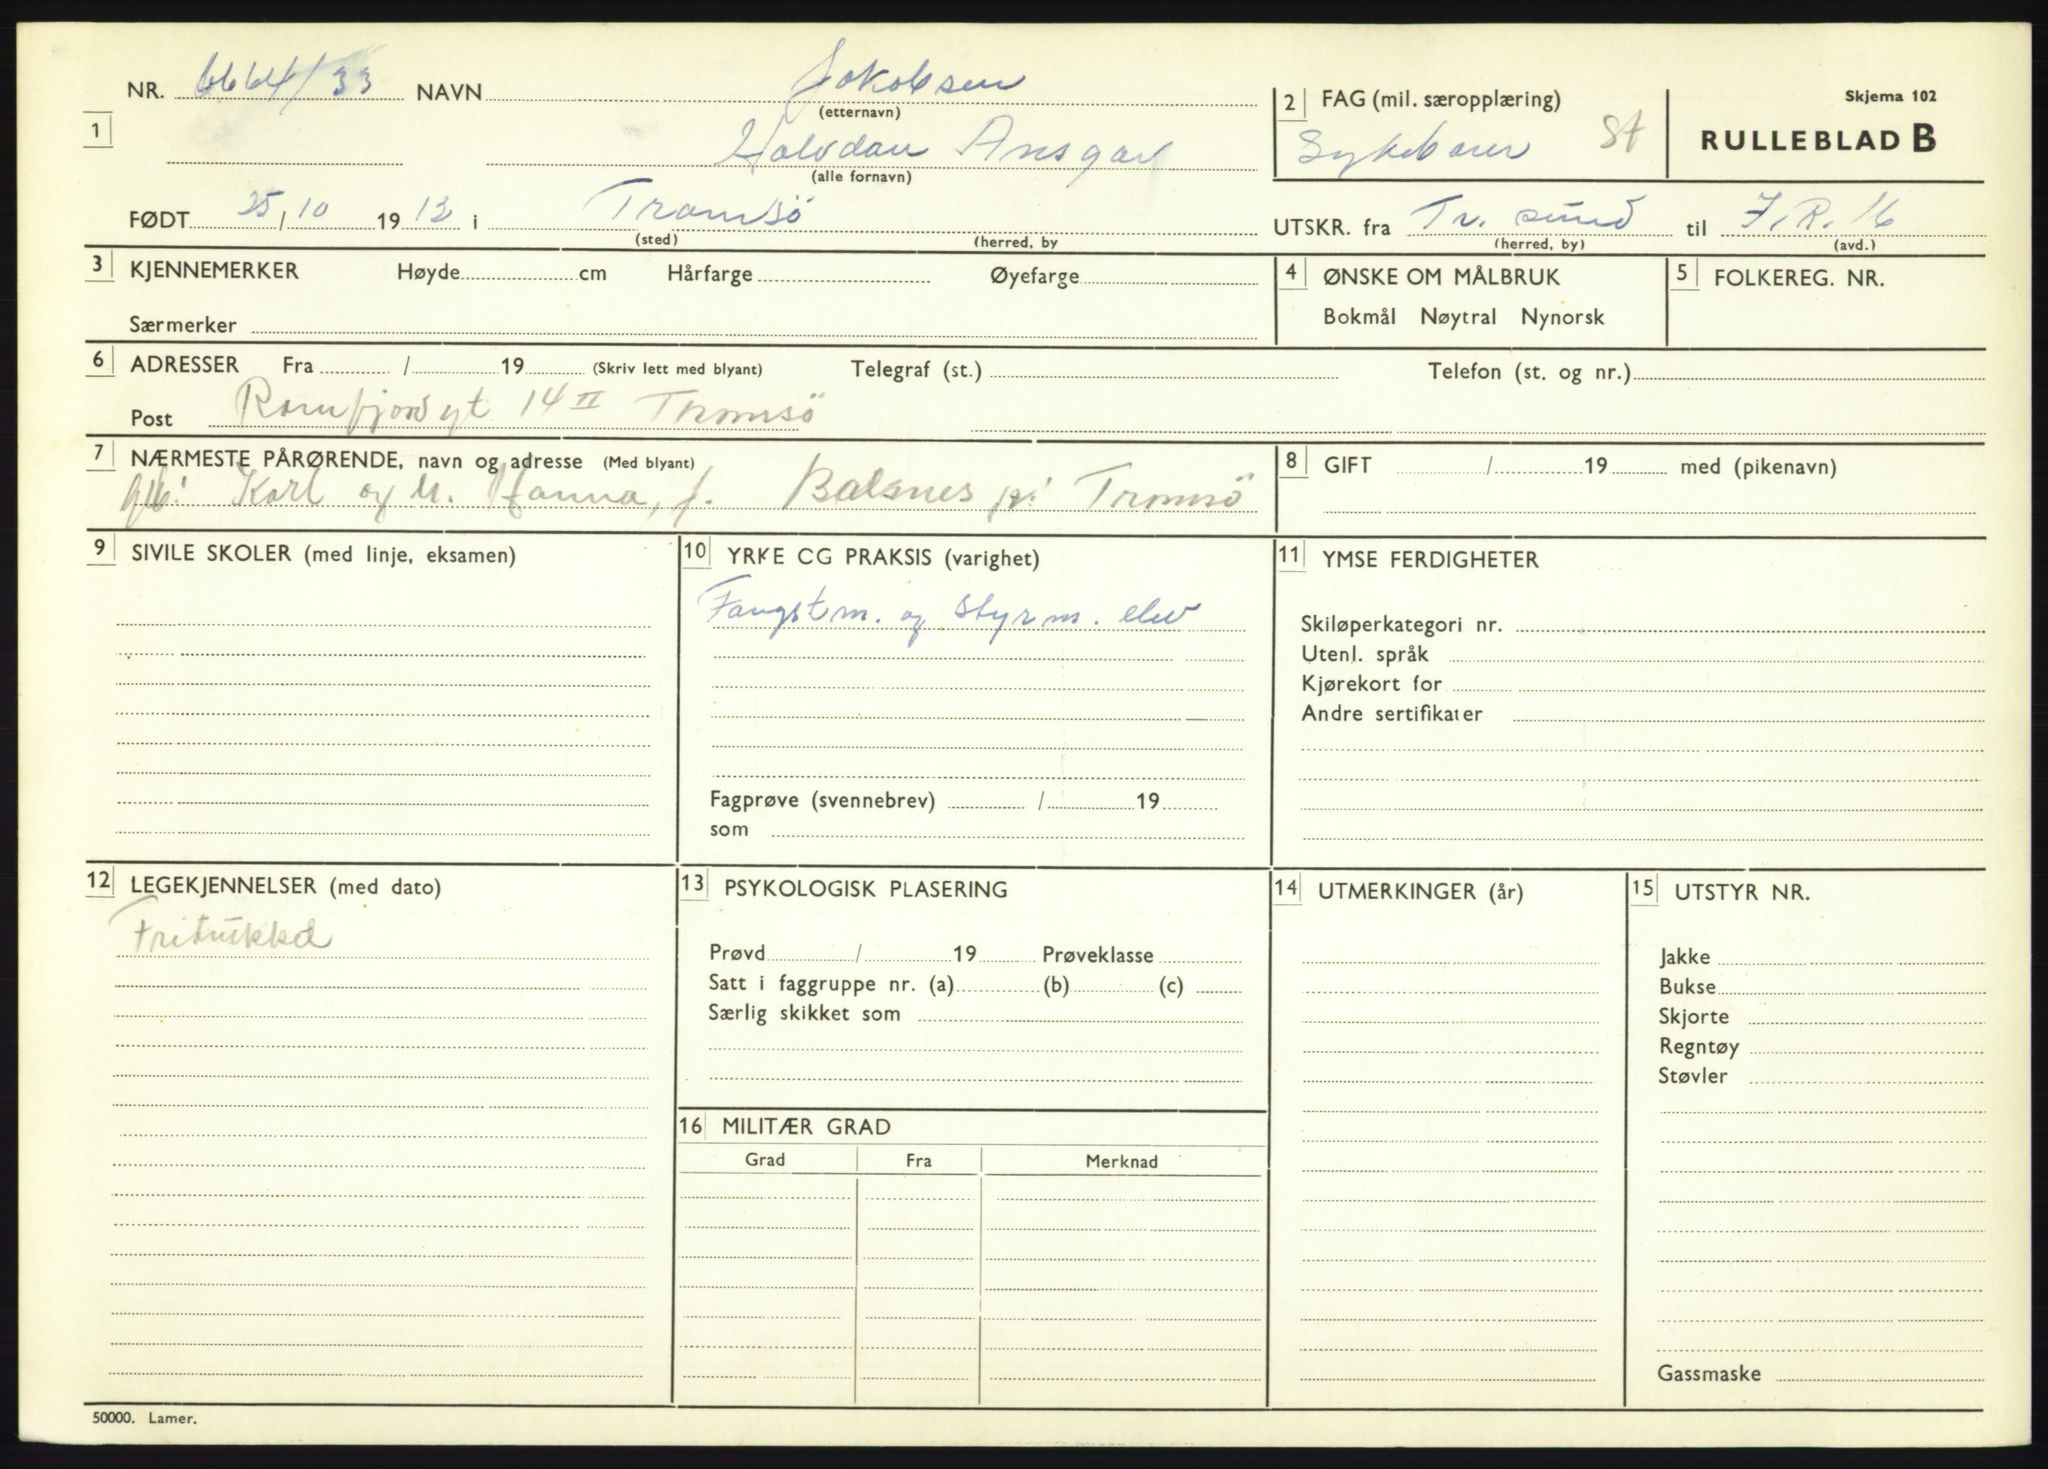 NR. 6664/33 NAVN Jakobsen
(etternavn)
1
Halvdan Ansgar
(alle fornavn)
2 FAG (mil. særopplæring)
Sykebærer St
Skjema 102
RULLEBLAD B
FØDT 25/10 1912 i Tromsö
(sted) (herred, by
UTSKR. fra Tr. sund til I.R. 16
(herred, by) (avd.)
3 KJENNEMERKER Høyde cm Hårfarge Øyefarge
Særmerker
4 ØNSKE OM MÅLBRUK
Bokmål Nøytral Nynorsk
5 FOLKEREG. NR.
6 ADRESSER Fra / 19 (Skriv lett med blyant) Telegraf (st.) Telefon (st. og nr.)
Post Ramfjordgt 14 II Tromsö
7 NÆRMESTE PÅRØRENDE, navn og adresse (Med blyant)
Karl og Hanna, f. Balsnes Tromsö
8 GIFT / 19 med (pikenavn)
9 SIVILE SKOLER (med linje, eksamen)
10 YRKE CG PRAKSIS (varighet)
Fangstm. og styrm. elev
Fagprøve (svennebrev) / 19
som
11 YMSE FERDIGHETER
Skiløperkategori nr.
Utenl. språk
Kjørekort for
Andre sertifikater
12 LEGEKJENNELSER (med dato)
Fritrukket
13 PSYKOLOGISK PLASERING
Prøvd / 19 Prøveklasse
Satt i faggruppe nr. (a) (b) (c)
Særlig skikket som
14 UTMERKINGER (år)
15 UTSTYR NR.
Jakke
Bukse
Skjorte
Regntøy
Støvler
Gassmaske
16 MILITÆR GRAD
Grad Fra Merknad
50000. Lamer.